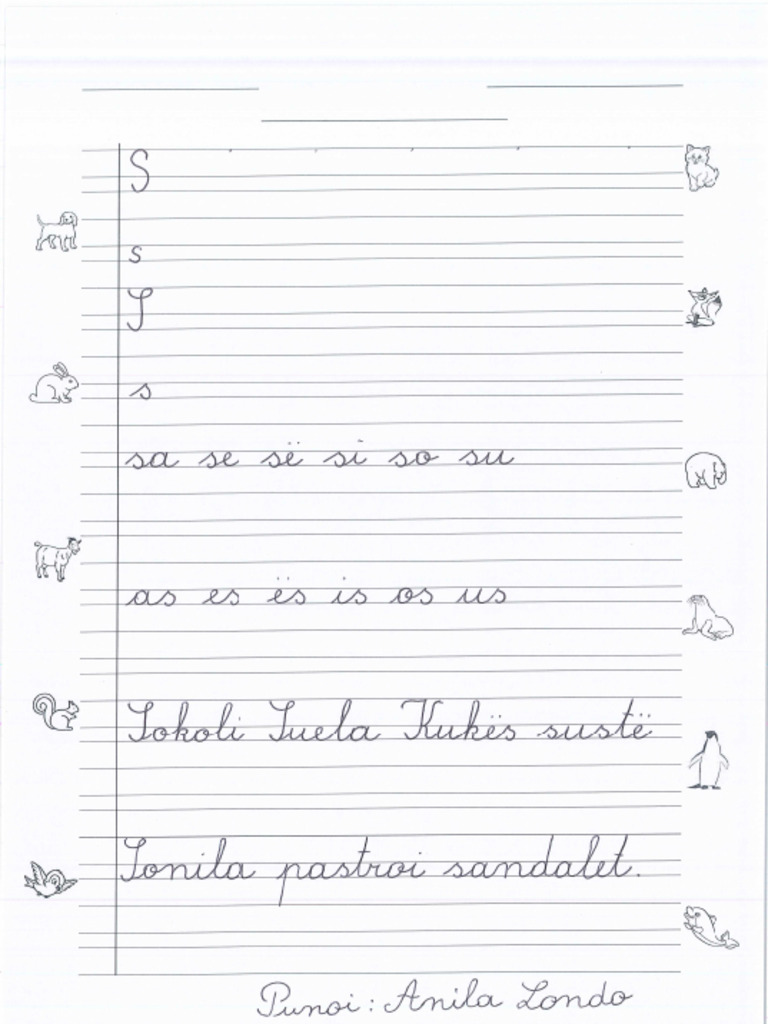 S
s
S
s
sa se së si so su
as es ës is os us
Sokoli Suela Kukës sustë
Sonila pastroi sandalet.
Punoi: Anila Londo